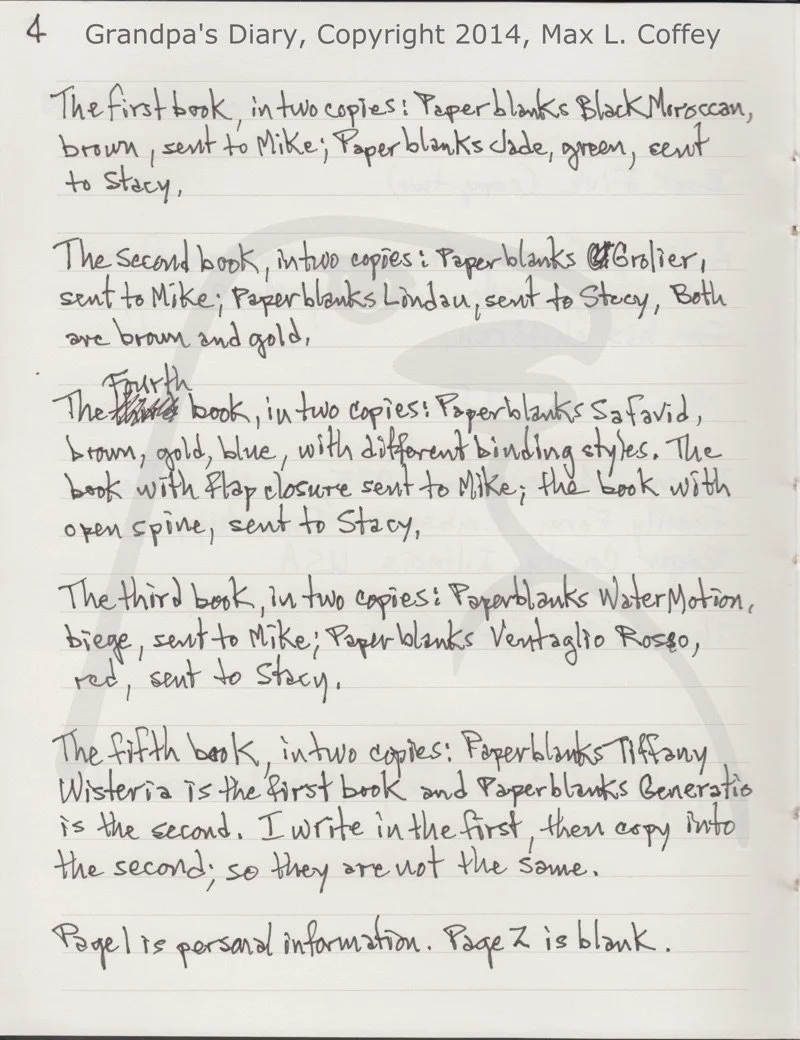 4 Grandpa's Diary, Copyright 2014, Max L. Coffey
The first book, in two copies: Paperblanks Black Moroccan,
brown, sent to Mike; Paperblanks Jade, green, sent
to Stacy.
The second book, in two copies: Paperblanks Grolier,
sent to Mike; Paperblanks Lindau, sent to Stacy, Both
are brown and gold.
Fourth
The book, in two copies: Paperblanks Safavid,
brown, gold, blue, with different binding styles. The
book with flap closure sent to Mike; the book with
open spine, sent to Stacy,
The third book, in two copies: Paperblanks Water Motion,
biege, sent to Mike; Paperblanks Ventaglio Rosso,
red, sent to Stacy.
The fifth book, in two copies: Paperblanks Tiffany
Wisteria is the first book and Paperblanks Generatio
is the second. I write in the first, then copy into
the second; so they are not the same.
Page 1 is personal information. Page 2 is blank.